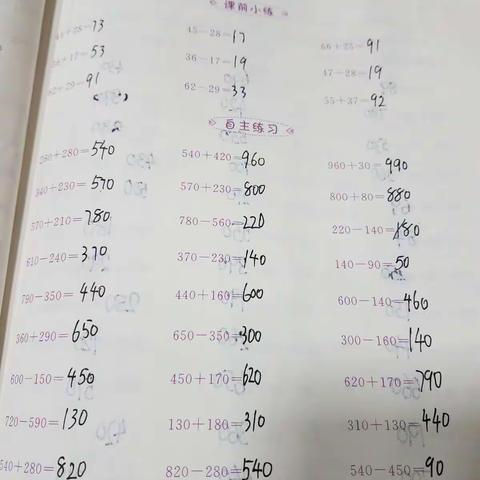 课前小练
45-28=17
+28=73
36-17=19
66+25=91
+17=53
62-29=33
47-28=19
+29=91
55+37=92
自主练习
260+280=540
540+420=960
960+30=990
340+230=570
570+230=800
800+80=880
570+210=780
780-560=220
220-140=180
610-240=370
370-230=140
140-90=50
790-350=440
440+160=600
600-140=460
360+290=650
650-350=300
300-160=140
600-150=450
450+170=620
620+170=790
720-590=130
130+180=310
310+130=440
540+280=820
820-280=540
540-450=90